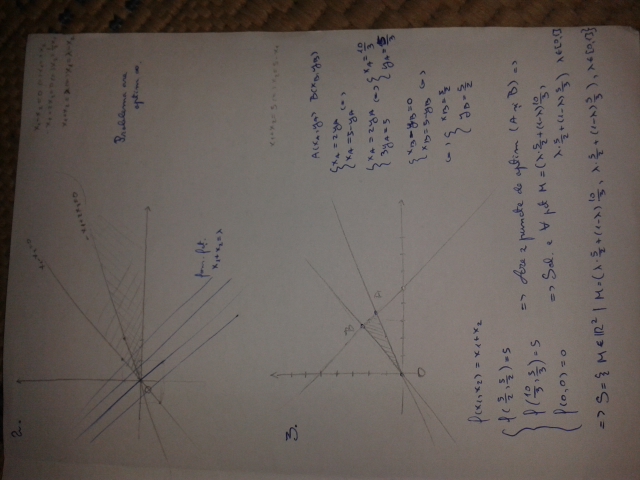 2.
x₁-x₂=0
-x₁+2x₂=0
Problema are
optim ∞.
x₁+x₂=λ
3.
A(x_A, y_A) B(x_B, y_B)
{ x_A = 2y_A
{ x_A = 5-y_A (=)
{ x_A = 2y_A
{ 3y_A = 5 (=) { x_A = 10/3
{ y_A = 5/3
{ x_B - y_B = 0
{ x_B = 5-y_B (=)
(=) { x_B = 5/2
{ y_B = 5/2
B
A
O
f(x₁,x₂) = x₁+x₂
{ f(5/2, 5/2) = 5
{ f(10/3, 5/3) = 5
{ f(0,0) = 0
=> Are 2 puncte de optim (A și B) =>
=> Sol. e ∀ pt M = (λ·5/2+(1-λ)10/3,
λ·5/2+(1-λ)5/3) λ∈[0,1]
=> S = { M∈ℝ² | M = (λ·5/2+(1-λ)10/3, λ·5/2+(1-λ)5/3), λ∈[0,1]}